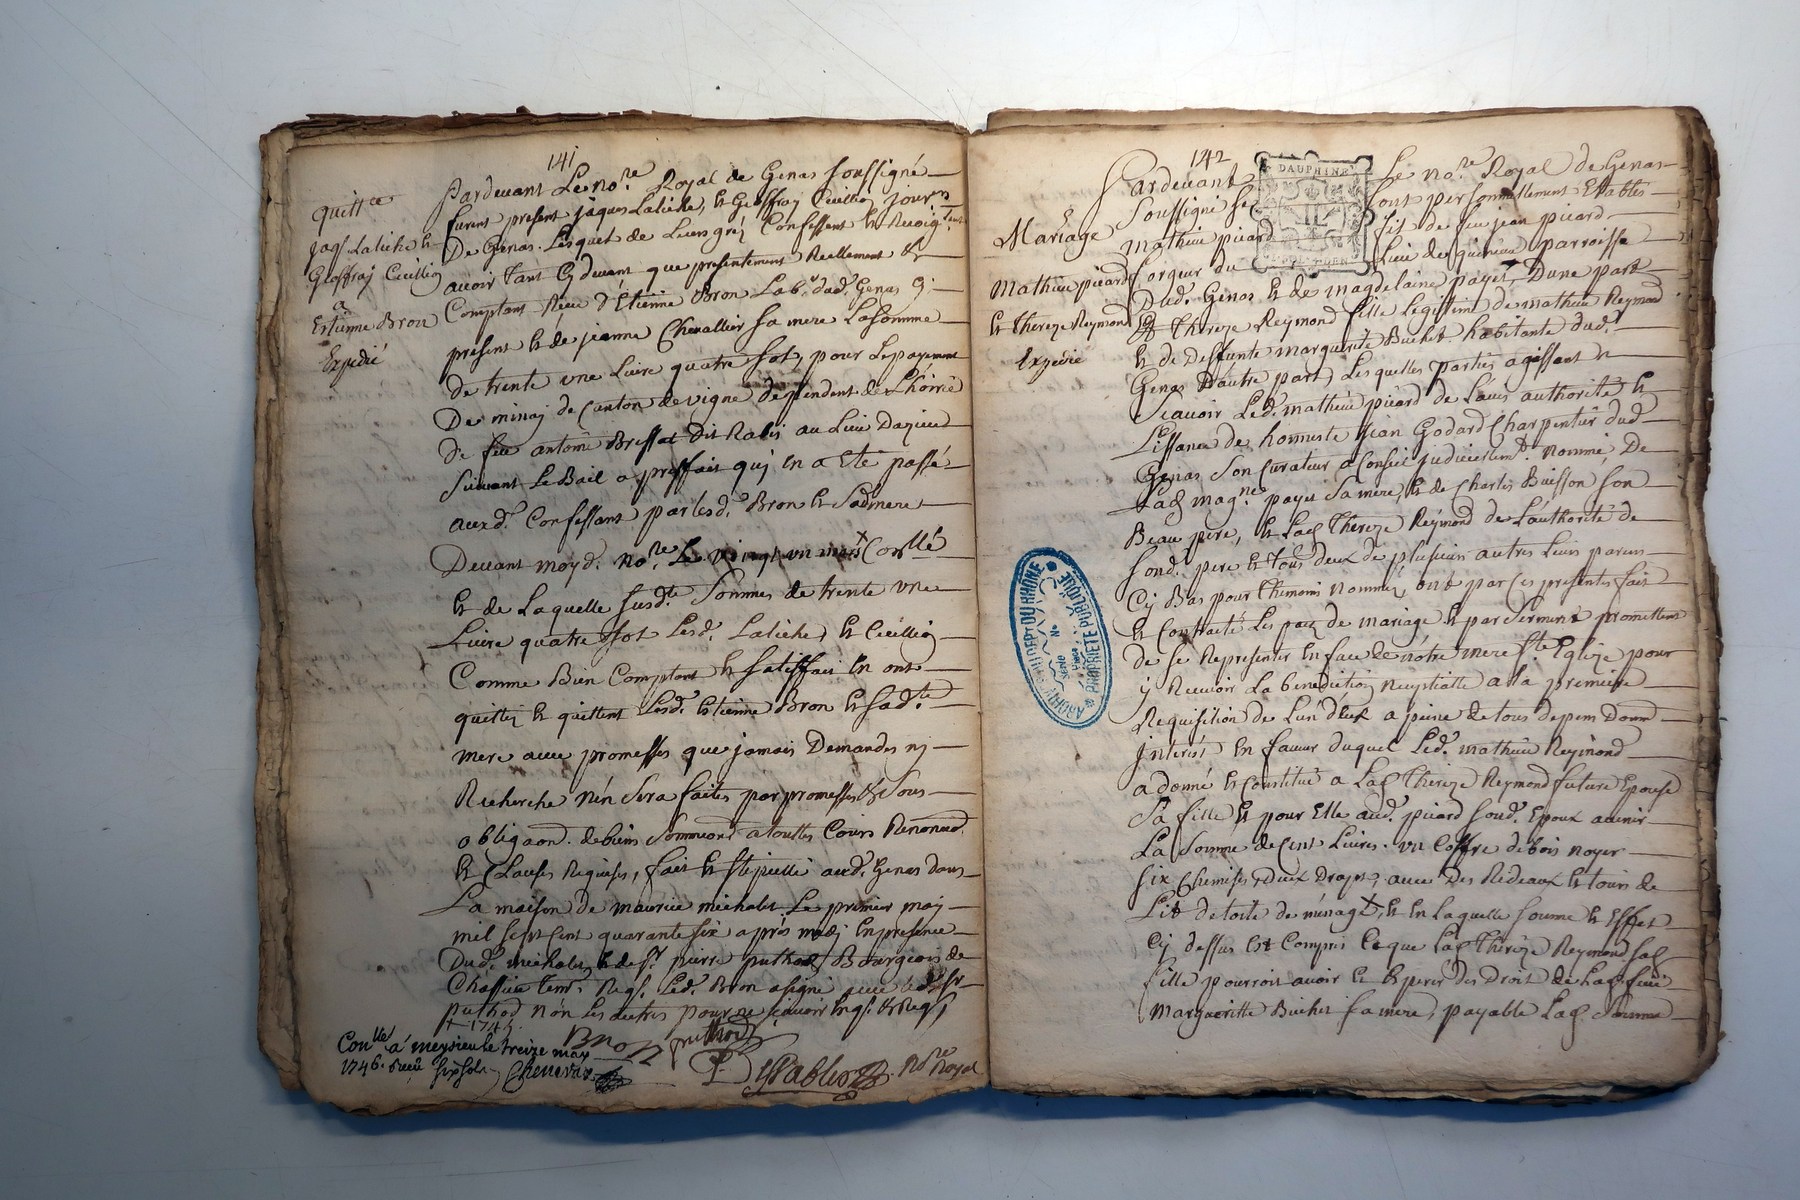 141
quittce
jaqs Laliche &
Geoffray Cuillion
a
Estienne Bron
Expedié
Pardevant Le nore. Royal de Genas soussigné
furent present jaques Laliche, & Geoffray Cuillion
De Genas. Lesquels de Leurs gréz Confessent
avoir tant Cy devant que presentement Reellement &
Comptant Receu d'Etienne Bron Lab. dud. Genas
present & de jeanne Chevallier sa mere La somme
de trente une Livre quatre sols, pour Le payement
De minaj de Canton de vigne dependent de L'hoirie
de feu antoine Brissat dit Rabis au Lieu
suivant Le Bail a prixffait quj En a Eté passé
auxd. Confessant par lesd. Bron & Sadmere
Devant moyd. nore. Le vingt un mars Conllé
& de Laquelle susdte Somme de trente une
Livre quatre sols Lesd. Laliche, & Cuillion
Comme Bien Comptent & satisffait En ont
quitté & quittent Lesd. Etienne Bron & sadte
mere avec promesses que jamais Demandes nj
Recherche n'en sera faites par promesses & sous
obligaon. de biens Soumiond. a touttes Cours Renonaod.
& Clauses Requises, fait & stipullé aud. Genas dans
La maison de maurice michalet Le premier may
mil sept Cent quarante six après midj En presence
Dud. michalet & de sr. pierre puthod Bourgeois de
Chassieu temt. Reqs. Led. Bron a signé avec led. sr.
puthod non Les autres pour ne sçavoir Enqs. & Reqs
+ 1745.
Bron puthod
Conllé a meysieu le treize may
1746. Receu six sols
Chenevaz
Despablo nore Royal
142
DAUPHINÉ
Mariage
Mathieu picard
& Thereze Reymond
Expedié
Pardevant Le nore. Royal de Genas
Soussigné se sont personnellement Etablis
mathieu picard fils de feu jean picard
forgeur du Lieu de parroisse
Dud. Genas & de magdelaine payet, D'une part
Et Thereze Reymond fille Legitime de mathieu Reymond
& de Deffunte marguerite Buchet habitante dud.
Genas D'autre part, Lesquelles parties agissent
sçavoir Led. mathieu picard de L'avis authorité &
Lissance de honneste jean Godard Charpentier dud.
Genas Son Curateur a Conseil nommé, De
Lad. magne. payet Sa mere, & de Charles Buisson son
Beau pere, & Lad. Thereze Reymond de L'authorité de
sond. pere & tous deux de plusieurs autres Leurs parens
Cy Bas pour themoins nommés, ont par Ces presentes fait
& Contracté Les pac de mariage & par Serment promettent
de se Representer En face de nôtre mere Ste Eglize pour
y Recevoir La benediction nuptialle a la premiere
Requisition de L'un d'eux a peine de tous depens Dom
Interest En faveur duquel Led. mathieu Reymond
a donné & Constitué a Lad. Thereze Reymond future Epouse
Sa fille & pour Elle aud. picard Soud. Epoux avenir
La Somme de Cent Livres. un Coffre de bois noyer
six Chemises, Deux Draps, avec Des Rideaux & tours de
Lit de toile de ménage, & En Laquelle somme & Effet
Cy dessus Est Compris Ce que Lad. Thérèze Reymond sad.
fille pourroit avoir & Esperer Des Droit de Lad. feue
Margueritte Buchet sa mere, payable Lad. Somme
ARCHIVES DU DEPT DU RHÔNE
PROPRIÉTÉ PUBLIQUE
Série
No